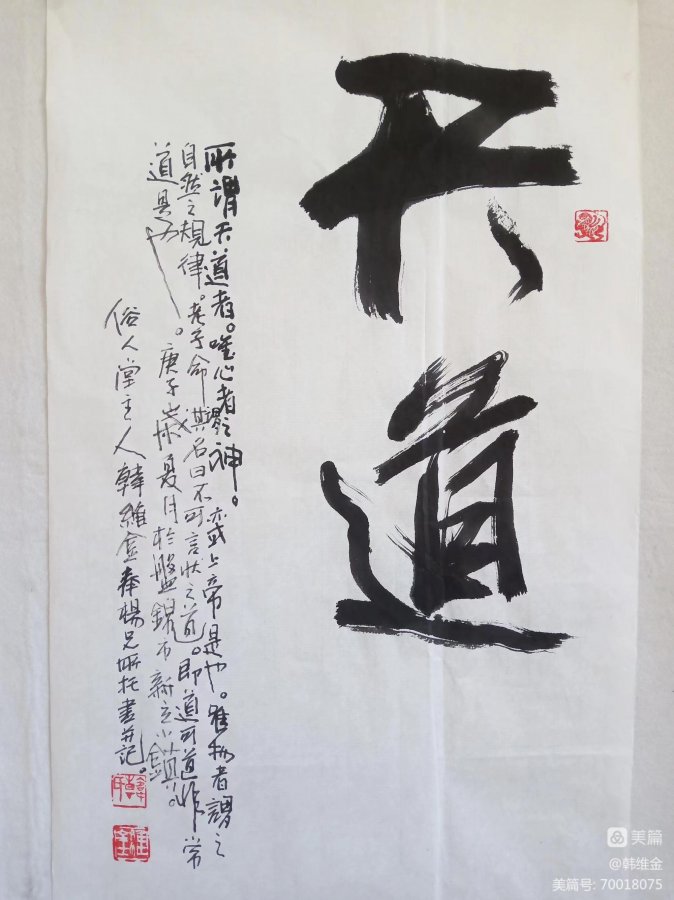 天道
所謂天道者。唯心者謂之神。亦或上帝是也。唯物者謂之
自然之規律。老子命其名曰不可言狀之道。即道可道非常
道是也。庚子歲夏月於盤錦市新立小鎮。
俗人堂主人韓維金奉楊兄所托書並記。
美篇
@韩维金
美篇号: 70018075